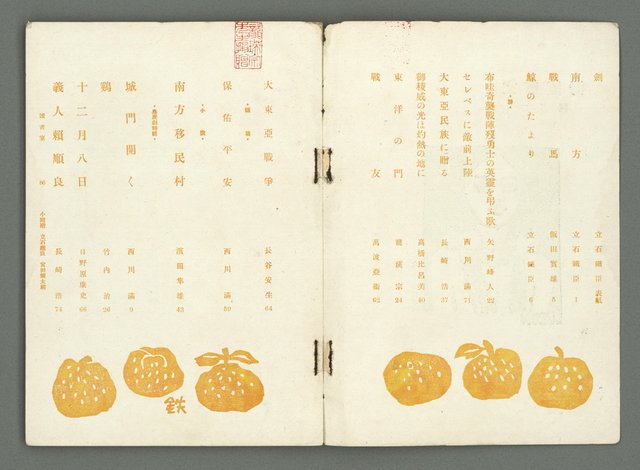 劍 立石鐵臣 表紙
南方 立石鐵臣 1
戰馬 飯田實雄 5
鯨のたより 立石鐵臣 6
・詩・
布哇奇襲戰陣歿勇士の英靈を弔ふ歌 矢野峰人 22
セレベスに敵前上陸 西川滿 71
大東亞民族に贈る 長崎浩 37
御稜威の光は灼熱の地に 高橋比呂美 40
東洋の門 龍瑛宗 24
戰友 萬波亞衛 62
大東亞戰爭 長谷安生 64
保佑平安 西川滿 59
・小說・
南方移民村 濱田隼雄 43
・長篇
城門開く 西川滿 9
鷄 竹內治 26
十二月八日 日野原康史 66
義人賴順良 長崎浩 74
讀書室 86
小間繪 立石鐵臣 宮田彌太郎
鉄